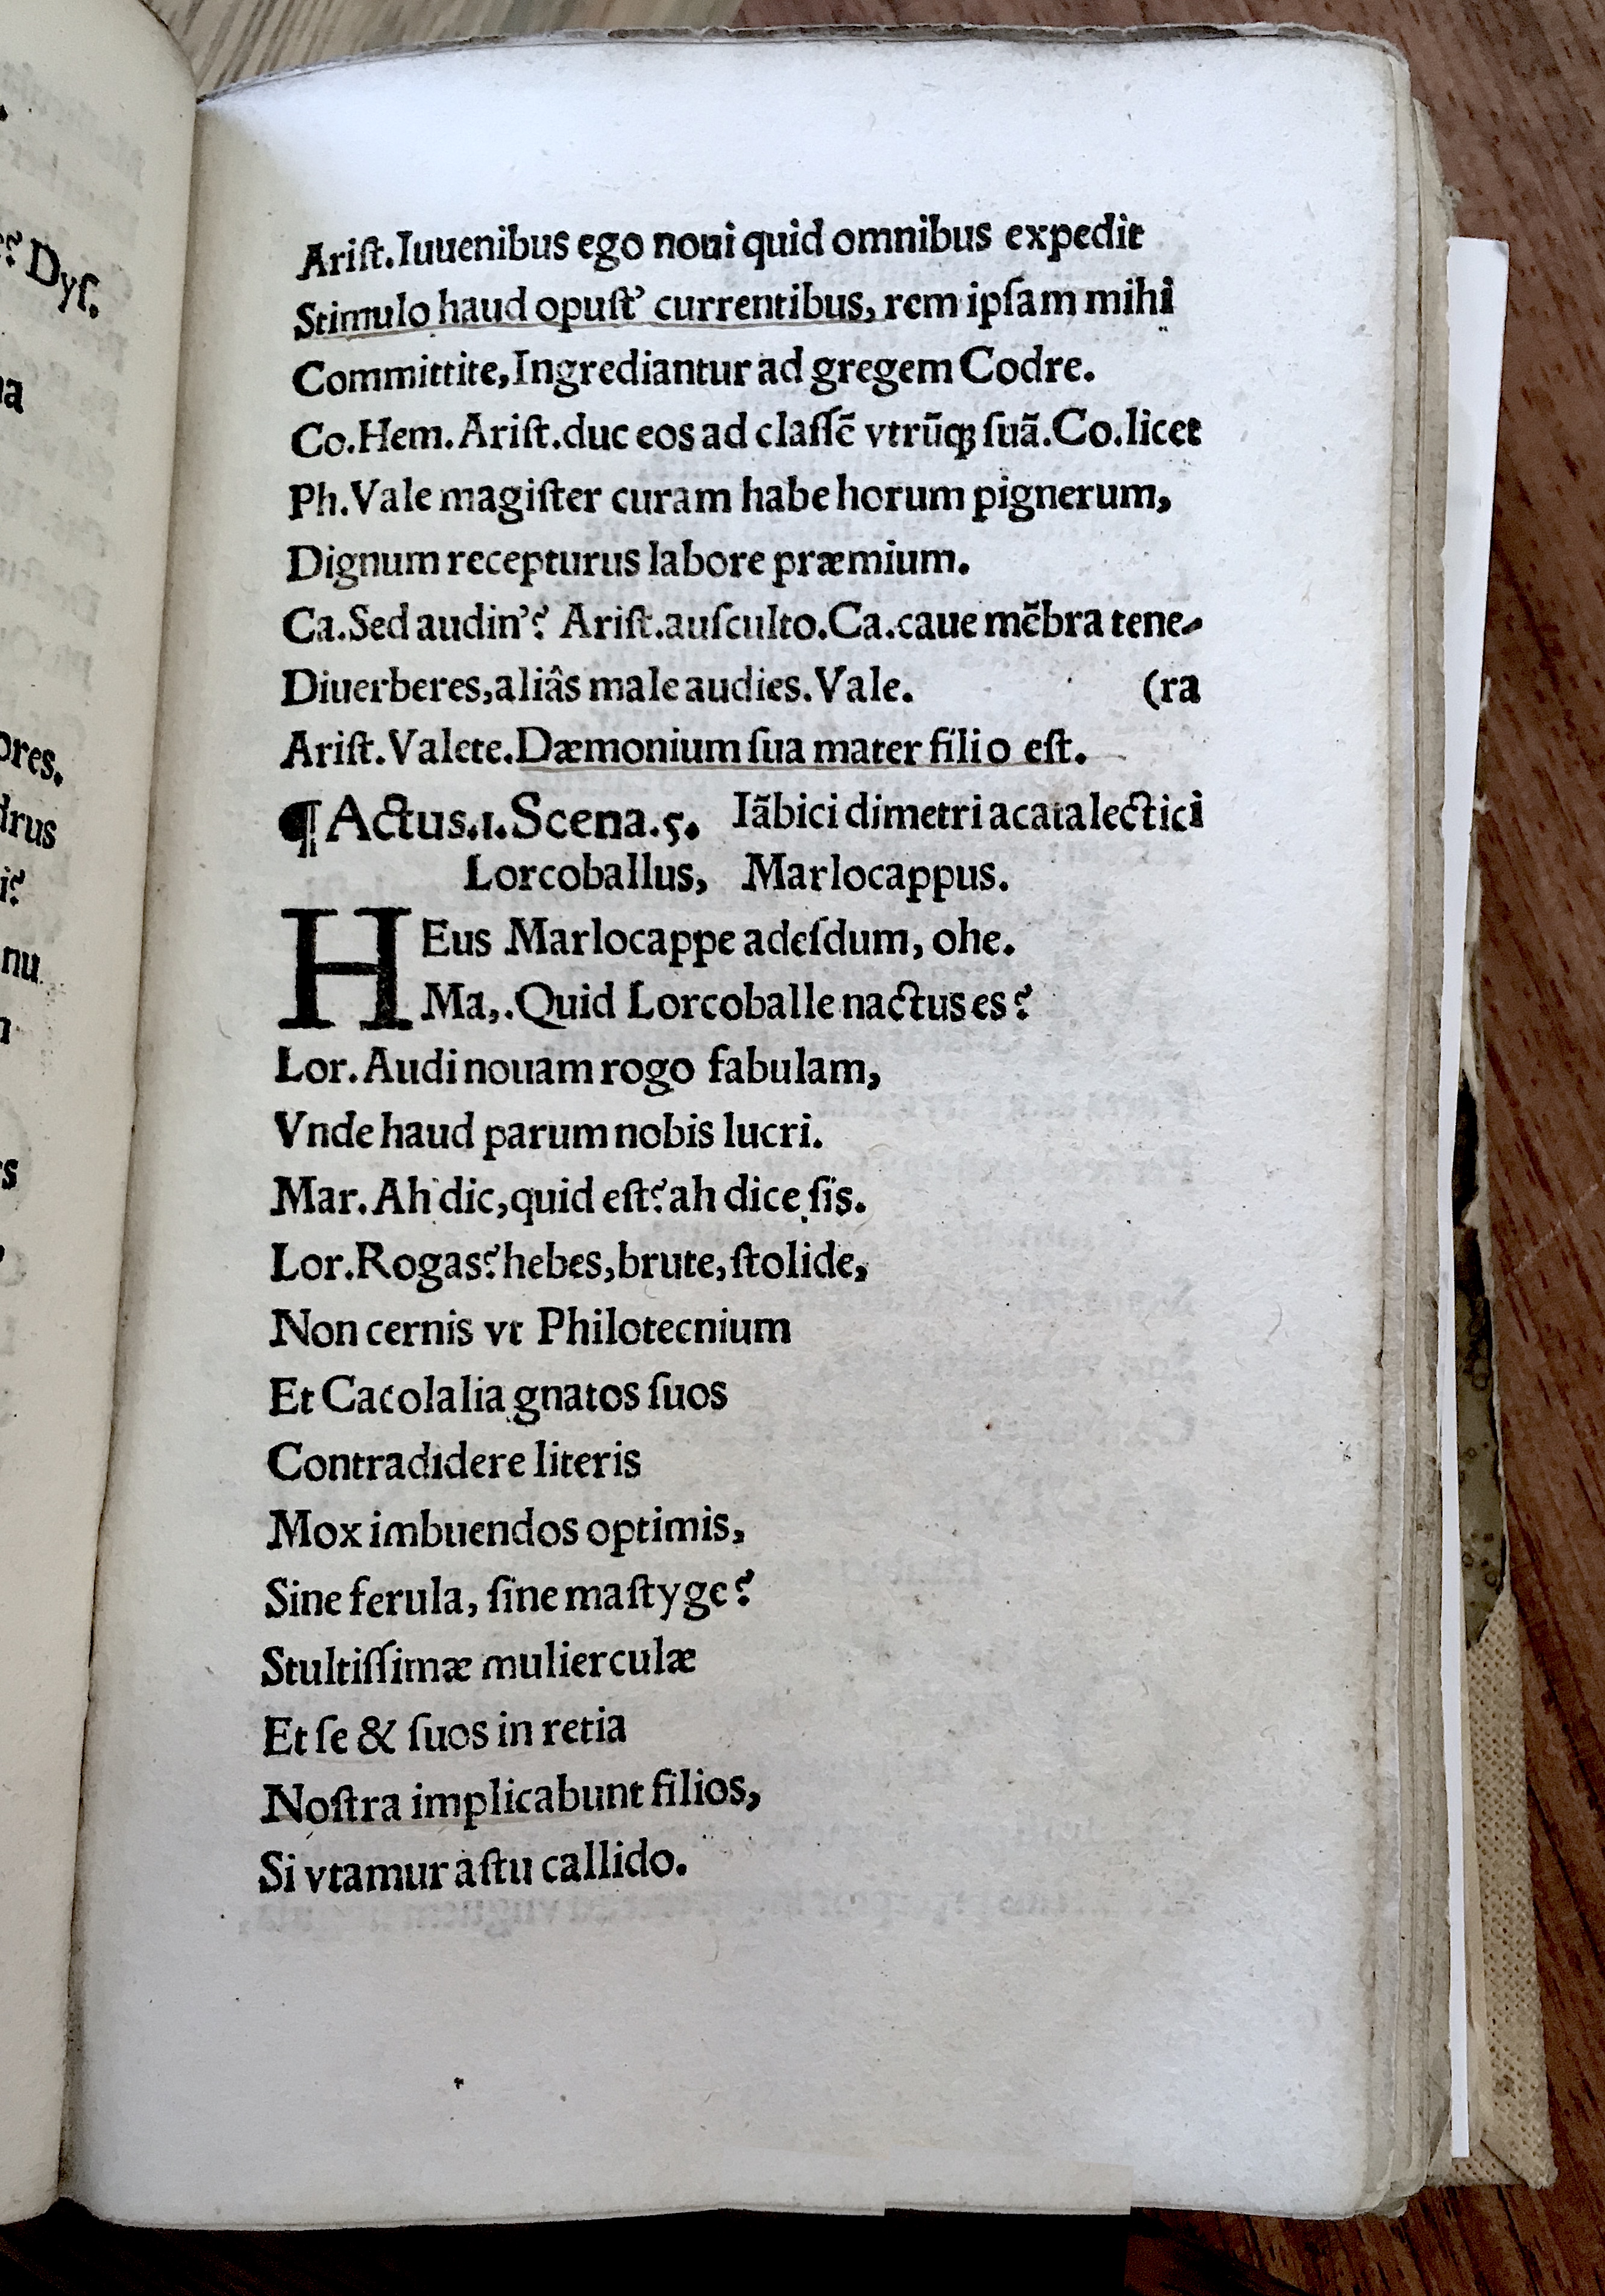 Ariſt.Iuuenibus ego noui quid omnibus expedit
Stimulo haud opuſt’ currentibus, rem ipſam mihi
Committite,Ingrediantur ad gregem Codre.
Co.Hem.Ariſt.duc eos ad claſſē vtrūqꝫ ſuā.Co.licet
Ph.Vale magiſter curam habe horum pignerum,
Dignum recepturus labore præmium.
Ca.Sed audin’? Ariſt.auſculto.Ca.caue mēbra tene-
Diuerberes,aliâs male audies.Vale. (ra
Ariſt.Valete.Dæmonium ſua mater filio eſt.
¶Actus.1.Scena.5. Iābici dimetri acatalectici
Lorcoballus, Marlocappus.
HEus Marlocappe adeſdum, ohe.
Ma,.Quid Lorcoballe nactus es?
Lor.Audi nouam rogo fabulam,
Vnde haud parum nobis lucri.
Mar.Ah dic,quid eſt?ah dice ſis.
Lor.Rogas?hebes,brute,ſtolide,
Non cernis vt Philotecnium
Et Cacolalia gnatos ſuos
Contradidere literis
Mox imbuendos optimis,
Sine ferula, ſine maſtyge?
Stultiſſimæ mulierculæ
Et ſe & ſuos in retia
Noſtra implicabunt filios,
Si vtamur aſtu callido.
? Dyſ.
ores.
drus
i?
nu